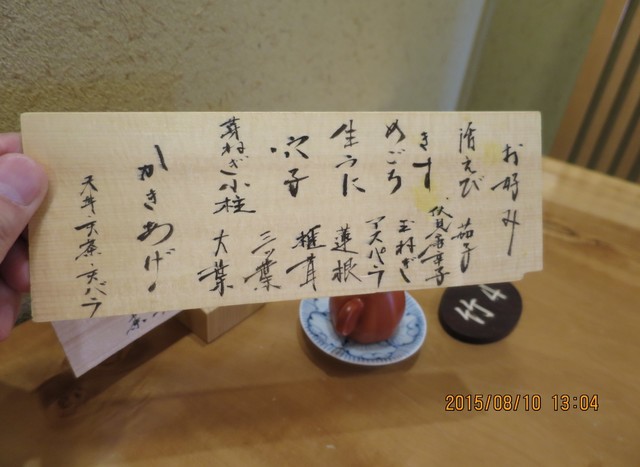 お好み
活えび 茄子
きす 伏見唐辛子
めごち 玉ねぎ
生うに アスパラ
穴子 蓮根
芽ねぎ小柱 椎茸
三ツ葉
大葉
かきあげ
天丼 天茶 天バラ
竹4
2015/08/10 13:04